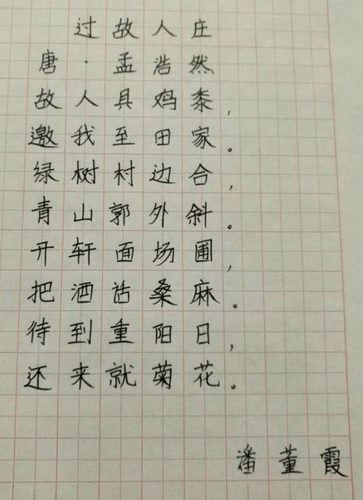 过故人庄
唐·孟浩然
故人具鸡黍，
邀我至田家。
绿树村边合，
青山郭外斜。
开轩面场圃，
把酒话桑麻。
待到重阳日，
还来就菊花。
潘董霞